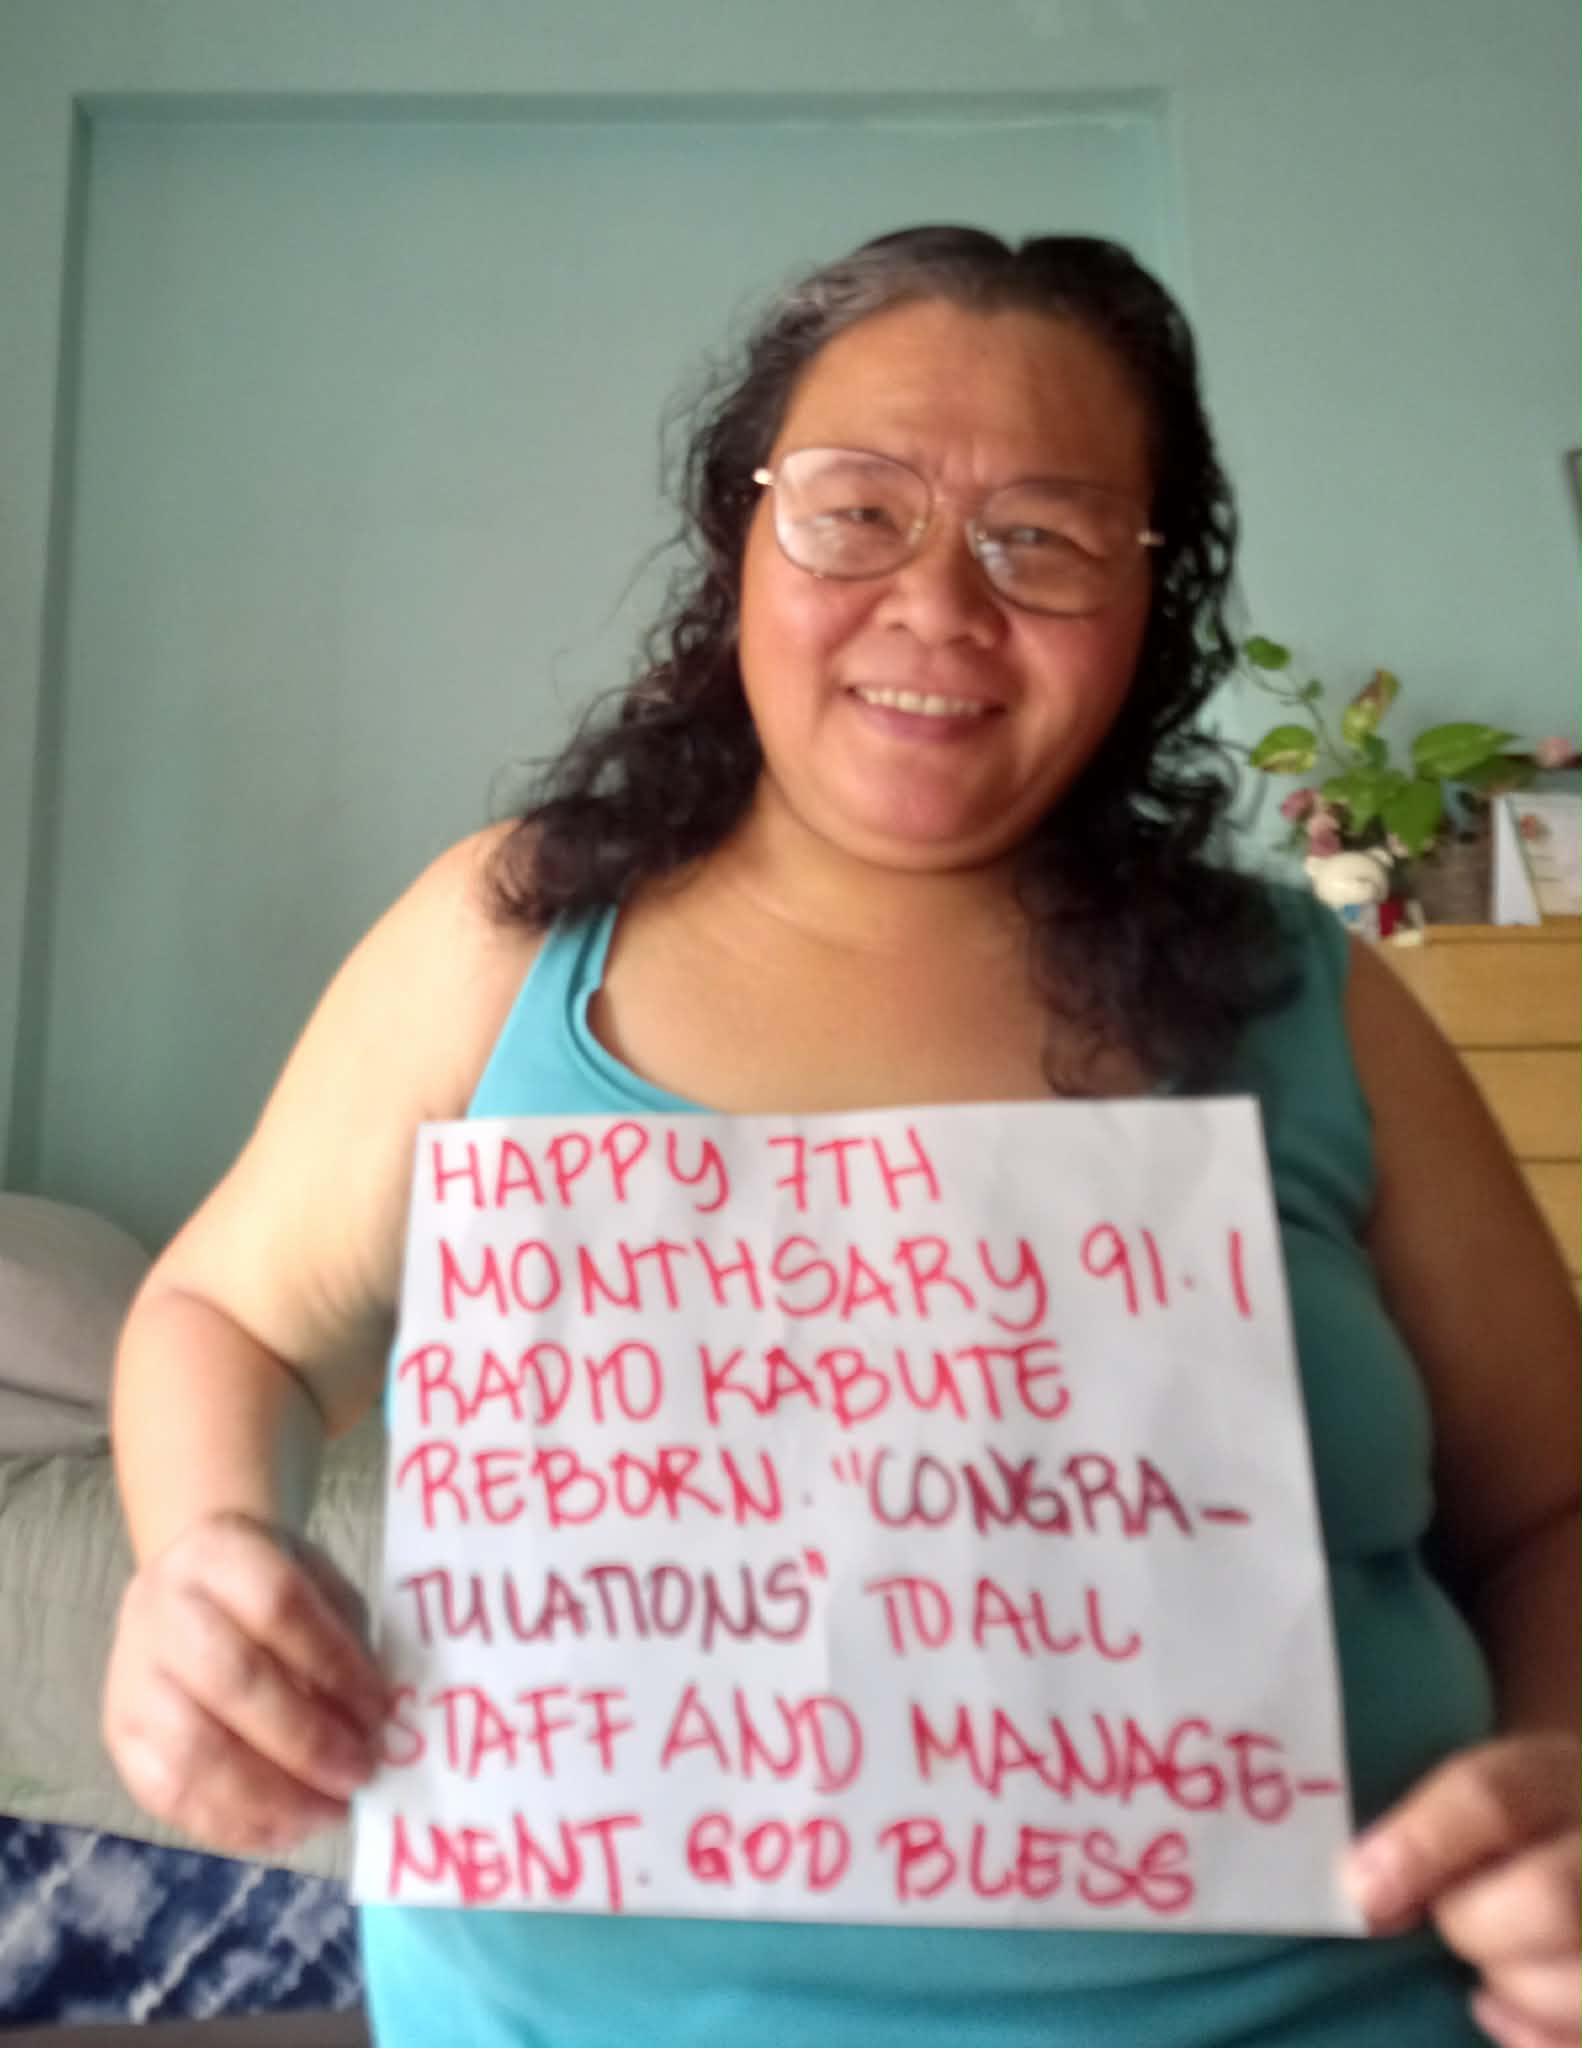 HAPPY 7TH
MONTHSARY 91.1
RADIO KABUTE
REBORN. "CONGRA-
TULATIONS" TO ALL
STAFF AND MANAGE-
MENT. GOD BLESS